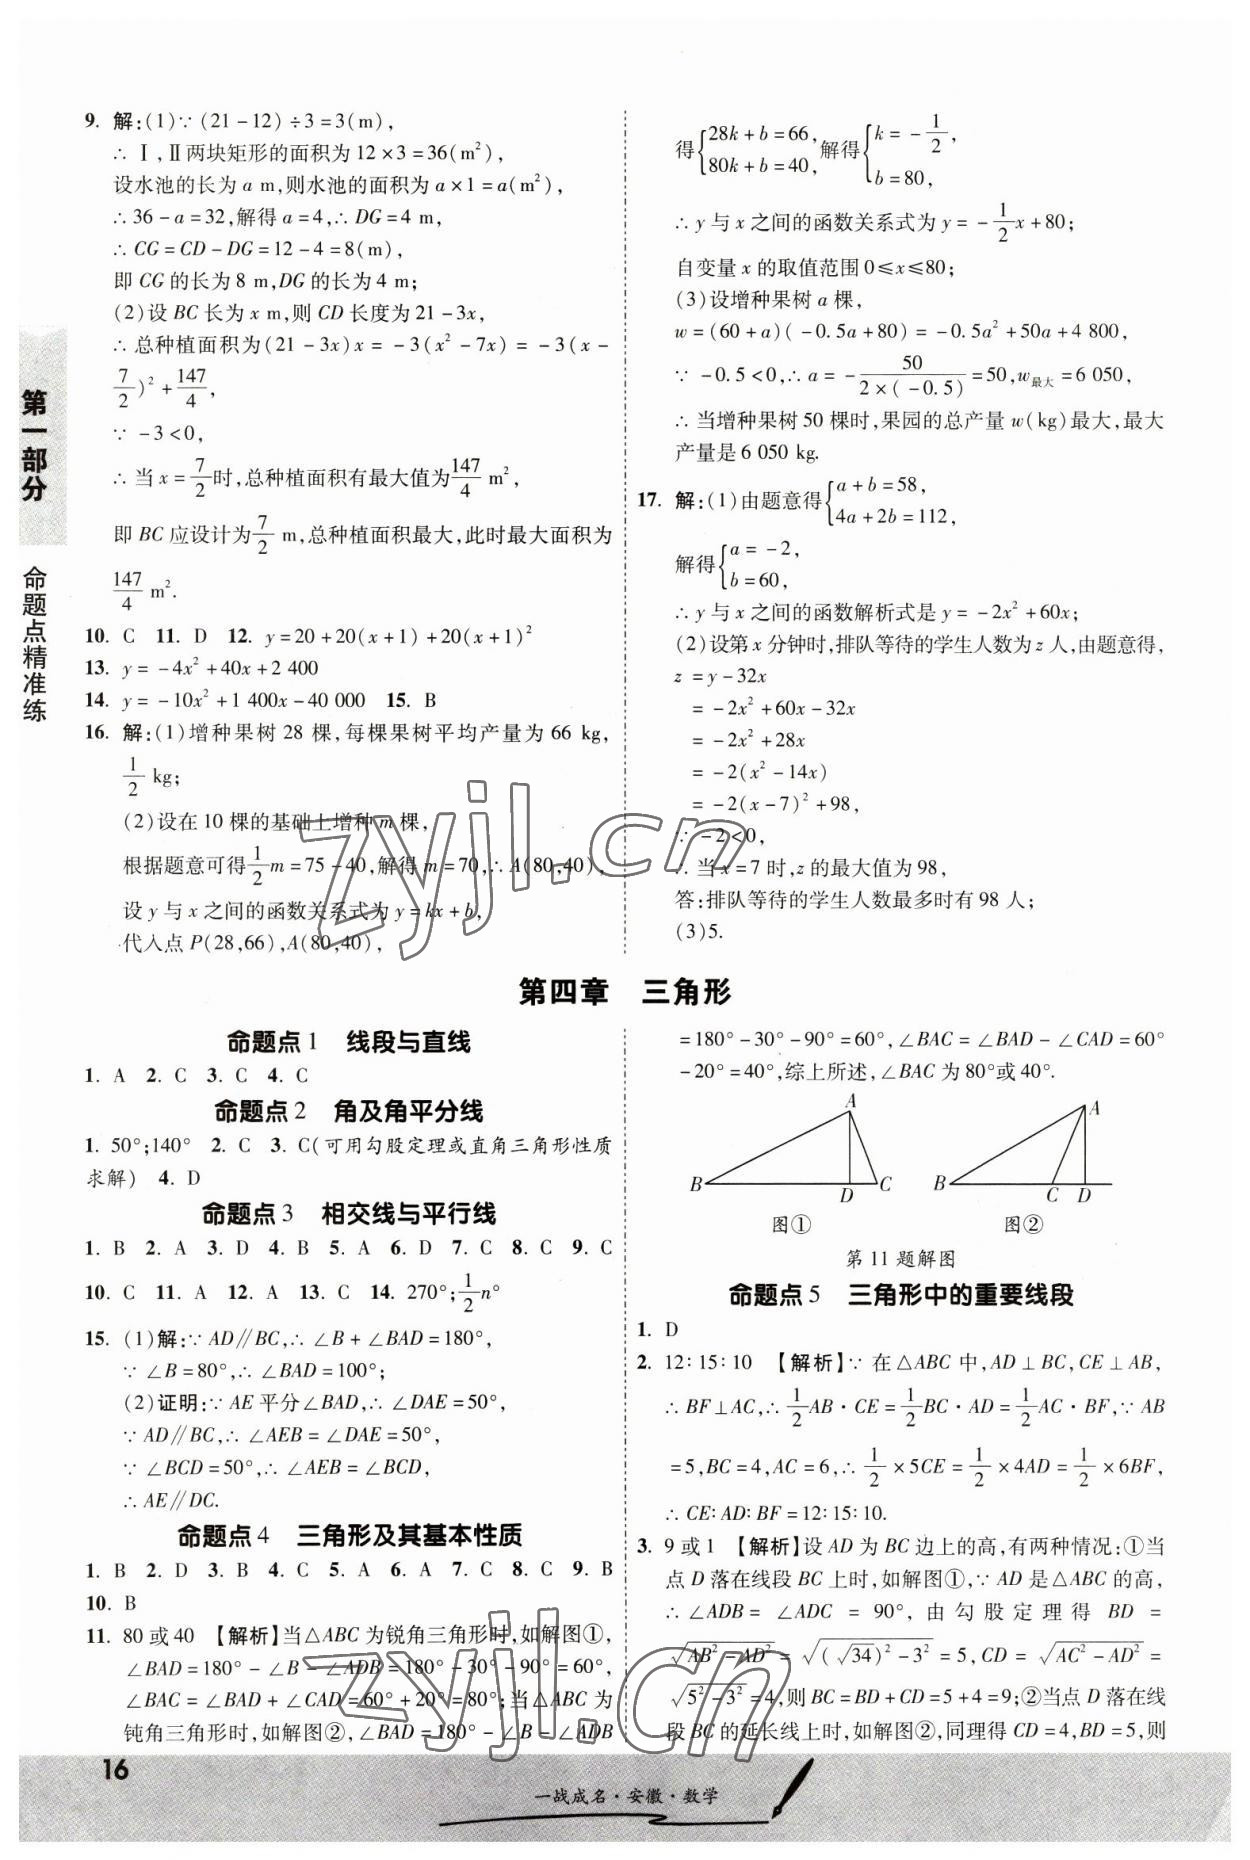 9. 解:(1)∵ (21-12)÷3=3(m),
∴ Ⅰ,Ⅱ两块矩形的面积为 12×3=36(m²),
设水池的长为 a m,则水池的面积为 a×1=a(m²),
∴ 36-a=32,解得 a=4,∴ DG=4 m,
∴ CG=CD-DG=12-4=8(m),
即 CG 的长为 8 m,DG 的长为 4 m;
(2)设 BC 长为 x m,则 CD 长度为 21-3x,
∴ 总种植面积为(21-3x)x=-3(x²-7x)=-3(x-
7/2)²+147/4,
∵ -3<0,
∴ 当 x=7/2时,总种植面积有最大值为147/4 m²,
即 BC 应设计为7/2 m,总种植面积最大,此时最大面积为
147/4 m².
10. C 11. D 12. y=20+20(x+1)+20(x+1)²
13. y=-4x²+40x+2 400
14. y=-10x²+1 400x-40 000 15. B
16. 解:(1)增种果树 28 棵,每棵果树平均产量为 66 kg,
1/2 kg;
(2)设在 10 棵的基础上增种 m 棵,
根据题意可得1/2m=75-40,解得 m=70,∴ A(80,40),
设 y 与 x 之间的函数关系式为 y=kx+b,
代入点 P(28,66),A(80,40),
得{28k+b=66, 80k+b=40, 解得{k=-1/2, b=80,
∴ y 与 x 之间的函数关系式为 y=-1/2x+80;
自变量 x 的取值范围 0≤x≤80;
(3)设增种果树 a 棵,
w=(60+a)(-0.5a+80)=-0.5a²+50a+4 800,
∵ -0.5<0,∴ a=-50/(2×(-0.5))=50,w最大=6 050,
∴ 当增种果树 50 棵时,果园的总产量 w(kg)最大,最大
产量是 6 050 kg.
17. 解:(1)由题意得{a+b=58, 4a+2b=112,
解得{a=-2, b=60,
∴ y 与 x 之间的函数解析式是 y=-2x²+60x;
(2)设第 x 分钟时,排队等待的学生人数为 z 人,由题意得,
z=y-32x
=-2x²+60x-32x
=-2x²+28x
=-2(x²-14x)
=-2(x-7)²+98,
∵ -2<0,
∴ 当 x=7 时,z 的最大值为 98,
答:排队等待的学生人数最多时有 98 人;
(3)5.
第一部分
命题点精准练
第四章 三角形
命题点1 线段与直线
1. A 2. C 3. C 4. C
命题点2 角及角平分线
1. 50°;140° 2. C 3. C(可用勾股定理或直角三角形性质
求解) 4. D
命题点3 相交线与平行线
1. B 2. A 3. D 4. B 5. A 6. D 7. C 8. C 9. C
10. C 11. A 12. A 13. C 14. 270°;1/2n°
15. (1)解:∵ AD∥BC,∴ ∠B+∠BAD=180°,
∵ ∠B=80°,∴ ∠BAD=100°;
(2)证明:∵ AE 平分∠BAD,∴ ∠DAE=50°,
∵ AD∥BC,∴ ∠AEB=∠DAE=50°,
∵ ∠BCD=50°,∴ ∠AEB=∠BCD,
∴ AE∥DC.
命题点4 三角形及其基本性质
1. B 2. D 3. B 4. C 5. A 6. A 7. B 8. C 9. B
10. B
11. 80 或 40 【解析】当△ABC 为锐角三角形时,如解图①,
∠BAD=180°-∠B-∠ADB=180°-30°-90°=60°,
∠BAC=∠BAD+∠CAD=60°+20°=80°;当△ABC 为
钝角三角形时,如解图②,∠BAD=180°-∠B-∠ADB
=180°-30°-90°=60°,∠BAC=∠BAD-∠CAD=60°
-20°=40°,综上所述,∠BAC 为 80°或 40°.
A B D C
图①
A B C D
图②
第 11 题解图
命题点5 三角形中的重要线段
1. D
2. 12∶15∶10 【解析】∵ 在△ABC 中,AD⊥BC,CE⊥AB,
∴ BF⊥AC,∴ 1/2AB·CE=1/2BC·AD=1/2AC·BF,∵ AB
=5,BC=4,AC=6,∴ 1/2×5CE=1/2×4AD=1/2×6BF,
∴ CE∶AD∶BF=12∶15∶10.
3. 9 或 1 【解析】设 AD 为 BC 边上的高,有两种情况:①当
点 D 落在线段 BC 上时,如解图①,∵ AD 是△ABC 的高,
∴ ∠ADB=∠ADC=90°,由勾股定理得 BD=
√(AB²-AD²)=√((√34)²-3²)=5,CD=√(AC²-AD²)=
√(5²-3²)=4,则 BC=BD+CD=5+4=9;②当点 D 落在线
段 BC 的延长线上时,如解图②,同理得 CD=4,BD=5,则
16
一战成名·安徽·数学
zyjl.cn
zyjl.cn